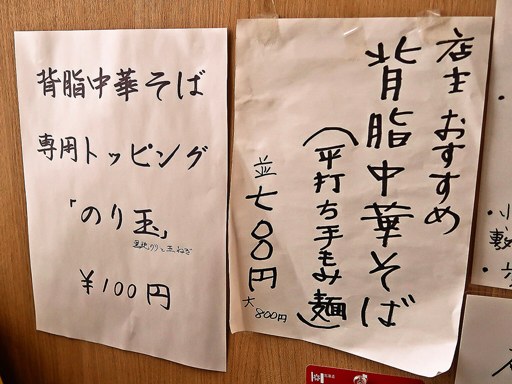 背脂中華そば
専用トッピング
「のり玉」
と玉ねぎ
¥100円
店主おすすめ
背脂中華そば
(平打ち手もみ麺)
並 七〇〇円
大 800円